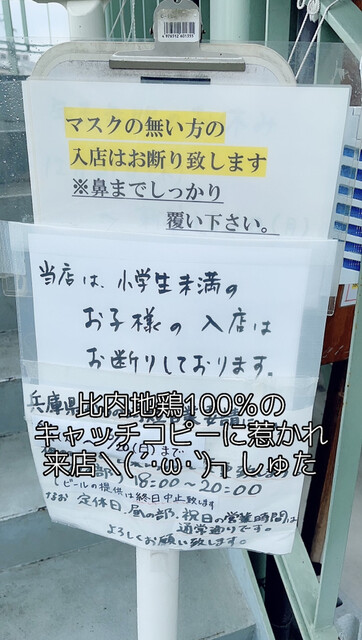 マスクの無い方の
入店はお断り致します
※鼻までしっかり
覆い下さい。
当店は、小学生未満の
お子様の入店は
お断りしております。
兵庫県
比内地鶏100%の
キャッチコピーに惹かれ
来店ヽ(・ω・)ㄟしゅた
20(月)まで
18:00〜20:00
(ビールの提供は終日中止致します
なお 定休日、昼の部、祝日の営業時間は
通常通りです。
よろしくお願い致します。